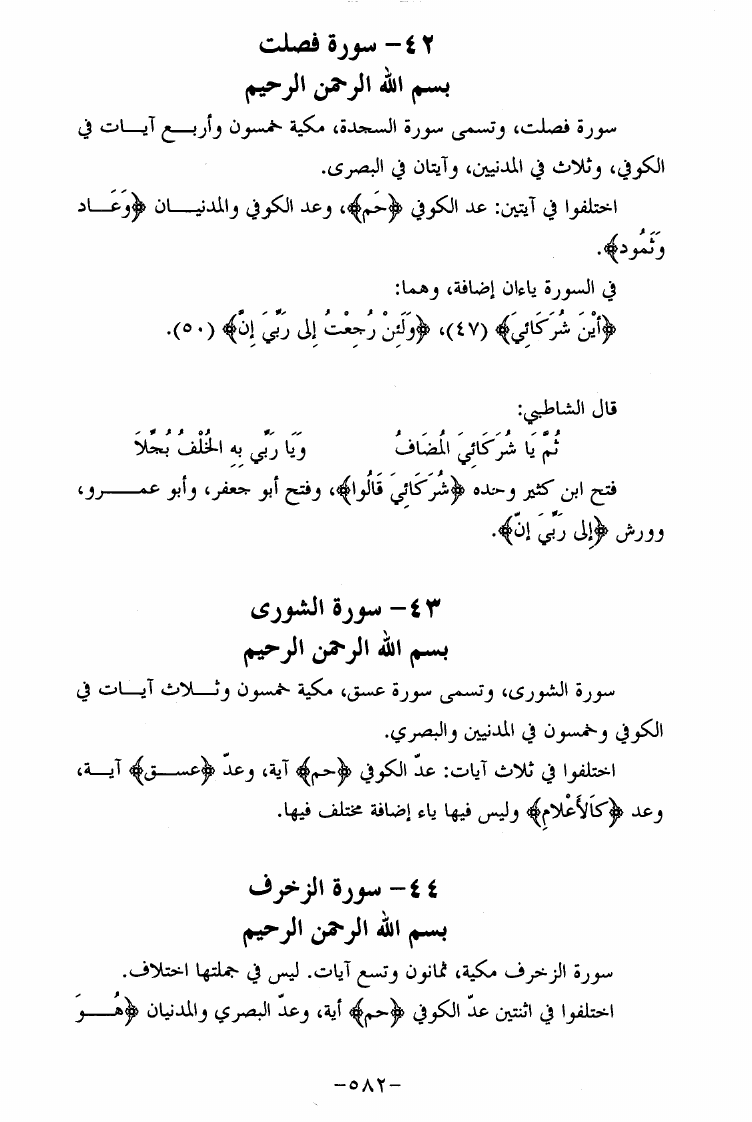 ٤٢- سورة فصلت
بسم الله الرحمن الرحيم
سورة فصلت، وتسمى سورة السجدة، مكية خمسون وأربع آيات في
الكوفي، وثلاث في المدنيين، وآيتان في البصرى.
اختلفوا في آيتين: عد الكوفي ﴿حَم﴾، وعد الكوفي والمدنيان ﴿وَعَاد
وَثَمُود﴾.
في السورة ياءان إضافة، وهما:
﴿أَيْنَ شُرَكَائِيَ﴾ (٤٧)، ﴿وَلَئِنْ رُجِعْتُ إِلى رَبِّيَ إِنَّ﴾ (٥٠).
قال الشاطبي:
ثُمَّ يَا شُرَكَائِيَ المُضَافُ وَيَا رَبِّي بِهِ الخُلْفُ بُجِّلاَ
فتح ابن كثير وحده ﴿شُرَكَائِيَ قَالُوا﴾، وفتح أبو جعفر، وأبو عمرو،
وورش ﴿إِلى رَبِّيَ إِنَّ﴾.
٤٣- سورة الشورى
بسم الله الرحمن الرحيم
سورة الشورى، وتسمى سورة عسق، مكية خمسون وثلاث آيات في
الكوفي وخمسون في المدنيين والبصري.
اختلفوا في ثلاث آيات: عدّ الكوفي ﴿حم﴾ آية، وعدّ ﴿عسق﴾ آية،
وعد ﴿كَالأَعْلامِ﴾ وليس فيها ياء إضافة مختلف فيها.
٤٤- سورة الزخرف
بسم الله الرحمن الرحيم
سورة الزخرف مكية، ثمانون وتسع آيات. ليس في جملتها اختلاف.
اختلفوا في اثنتين عدّ الكوفي ﴿حم﴾ أية، وعدّ البصري والمدنيان ﴿هُوَ
-٥٨٢-